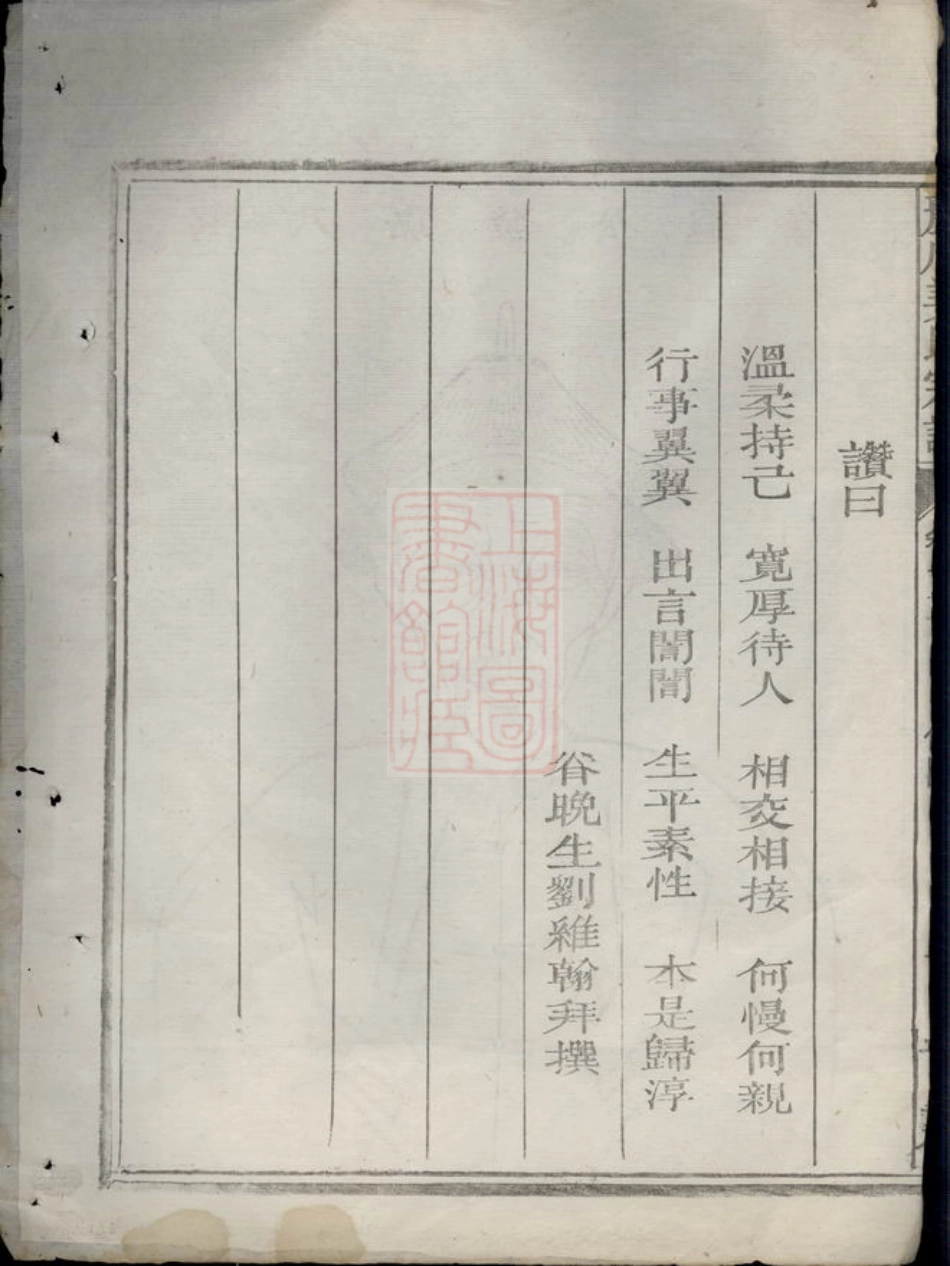 讚曰
溫柔持己 寬厚待人 相交相接 何慢何親
行事翼翼 出言誾誾 生平素性 本是歸淳
谷晚生劉維翰拜撰
上海圖
書館藏